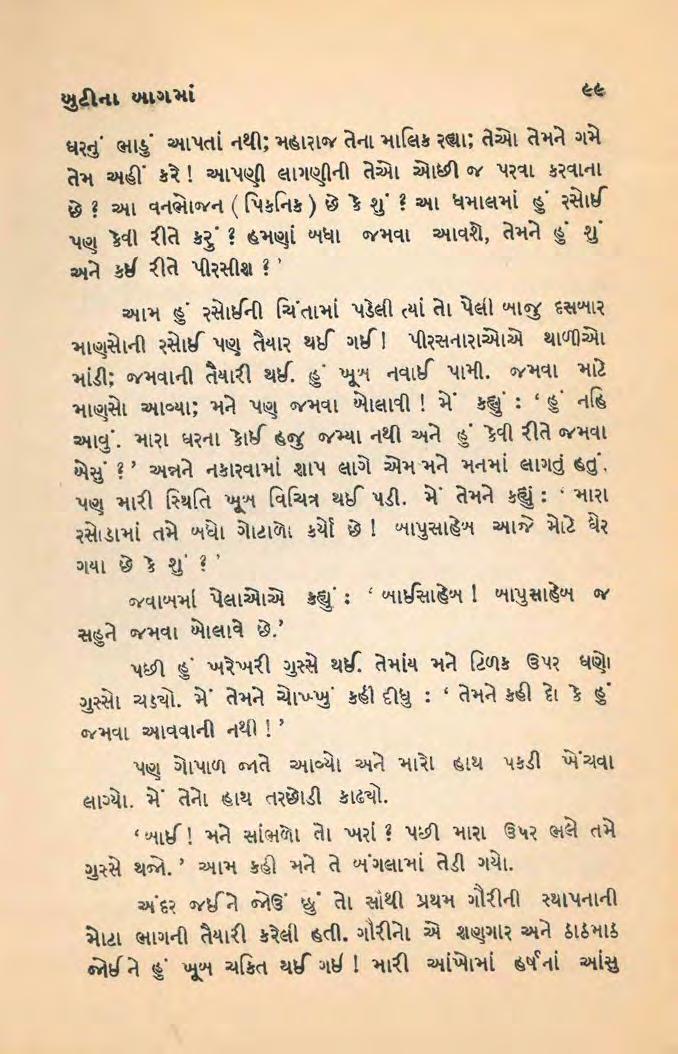 ખુટીના બાગમાં ૯૯
ઘરનું ભાડું આપતાં નથી; મહારાજ તેના માલિક રહ્યા; તેઓ તેમને ગમે
તેમ અહીં કરે ! આપણી લાગણીની તેઓ ઓછી જ પરવા કરવાના
છે ? આ વનભોજન ( પિકનિક ) છે કે શું ? આ ધમાલમાં હું રસોઈ
પણ કેવી રીતે કરું ? હમણાં બધા જમવા આવશે, તેમને હું શું
અને કઈ રીતે પીરસીશ ? ’
આમ હું રસોઈની ચિંતામાં પડેલી ત્યાં તો પેલી બાજુ દસબાર
માણસોની રસોઈ પણ તૈયાર થઈ ગઈ ! પીરસનારાઓએ થાળીઓ
માંડી; જમવાની તૈયારી થઈ. હું ખૂબ નવાઈ પામી. જમવા માટે
માણસો આવ્યા; મને પણ જમવા બોલાવી ! મેં કહ્યું : ‘ હું નહિ
આવું. મારા ઘરના કોઈ હજુ જમ્યા નથી અને હું કેવી રીતે જમવા
બેસું ? ’ અન્નને નકારવામાં શાપ લાગે એમ મને મનમાં લાગતું હતું.
પણ મારી સ્થિતિ ખૂબ વિચિત્ર થઈ પડી. મેં તેમને કહ્યું : ‘ મારા
રસોડામાં તમે બધો ગોટાળો કર્યો છે ! બાપુસાહેબ આજે મોટે ઘેર
ગયા છે કે શું ? ’
જવાબમાં પેલાઓએ કહ્યું : ‘ બાઈસાહેબ ! બાપુસાહેબ જ
સહુને જમવા બોલાવે છે.’
પછી હું ખરેખરી ગુસ્સે થઈ. તેમાંય મને ટિળક ઉપર ઘણો
ગુસ્સો ચડયો. મેં તેમને ચોખ્ખું કહી દીધુ : ‘ તેમને કહી દો કે હું
જમવા આવવાની નથી ! ’
પણ ગોપાળ જાતે આવ્યો અને મારો હાથ પકડી ખેંચવા
લાગ્યો. મેં તેનો હાથ તરછોડી કાઢયો.
‘ બાઈ ! મને સાંભળો તો ખરાં ? પછી મારા ઉપર ભલે તમે
ગુસ્સે થજો. ’ આમ કહી મને તે બંગલામાં તેડી ગયો.
અંદર જઈને જોઉં છું તો સૌથી પ્રથમ ગૌરીની સ્થાપનાની
મોટા ભાગની તૈયારી કરેલી હતી. ગૌરીનો એ શણગાર અને ઠાઠમાઠ
જોઈને હું ખૂબ ચકિત થઈ ગઈ ! મારી આંખોમાં હર્ષનાં આંસુ